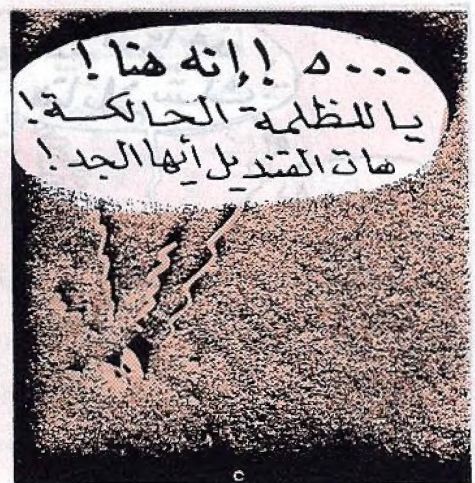 ...ه! إنه هنا!
يا للظلمة الحالكة!
هات القنديل أيها الجد!
c